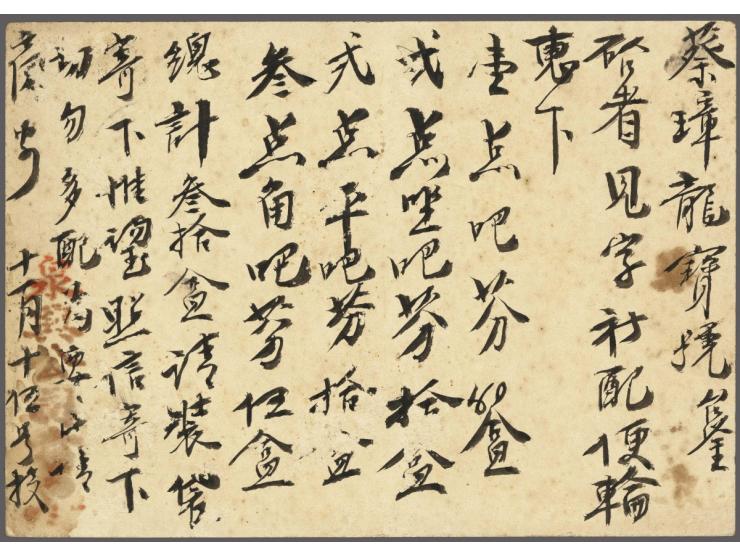 蔡璋龍寶號鑒
啟者見字祈配便輪
惠下
壹点吧芬盒
弍点坐吧芬拾盒
弍点平吧芬拾盒
叁点角吧芬伍盒
總計叁拾盒請裝袋
寄下惟望照信寄下
切勿多配為要
十一月十伍号投
泉興公司